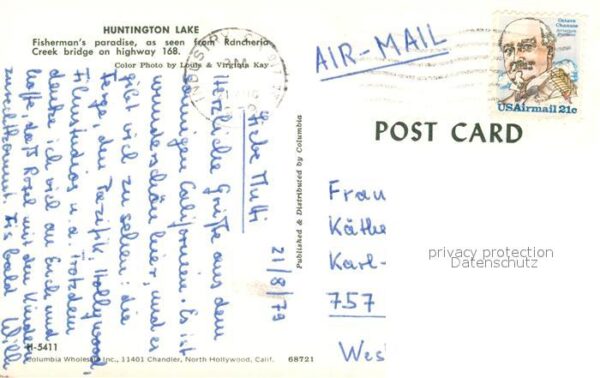 HUNTINGTON LAKE
Fisherman's paradise, as seen from Rancheria
Creek bridge on highway 168.
Color Photo by Louis & Virginia Kay
AIR-MAIL
Octave
Chanute
Aviation
Pioneer
USAirmail 21c
POST CARD
Published & Distributed by Columbia
21/8/79
Liebe Mutti
Herzliche Grüße aus dem
sonnigen Californien. Es ist
wunderschön hier, und es
gibt viel zu sehen: die
Berge, den Pazifik, Hollywood
Filmstudios u.a. Trotzdem
denke ich viel an Euch und
hoffe, daß Rosel mit den Kindern
zurechtkommt. Bis bald Willi
Frau
Käthe
Karl-
757
Wes
privacy protection
Datenschutz
H-5411
Columbia Wholesale Inc., 11401 Chandler, North Hollywood, Calif.
68721